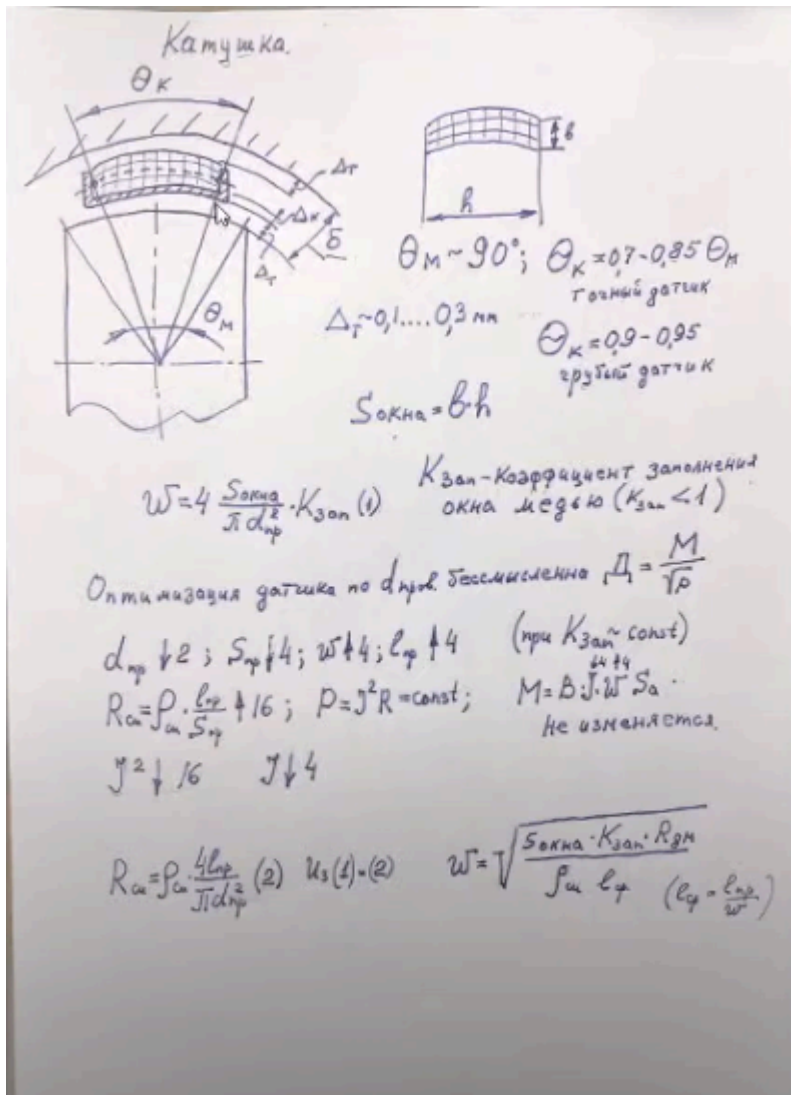 Катушка.
Θк
Δт
Δк
δ
Δт
Θм
в
h
Θм ~ 90°; Θк = 0,7 - 0,85 Θм
точный датчик
Δт ~ 0,1....0,3 мм
Θк = 0,9 - 0,95
грубый датчик
Sокна = в·h
W = 4 Sокна / π d²пр · Kзап (1)
Kзап - Коэффициент заполнения
окна медью (Kзап < 1)
Оптимизация датчика по dпров. бессмысленна Д = M / √P
dпр ↓2 ; Sпр ↓4 ; W↑4 ; lпр ↑4 (при Kзап ~ const)
Rсм = ρсм · lпр / Sпр ↑16 ; P = J²R = const ; M = B·J·W Sа .
↓4 ↑4
не изменяется.
J² ↓ 16 J ↓ 4
Rсм = ρсм · 4lпр / π d²пр (2) Из (1)-(2) W = √ Sокна · Kзап · Rдм / ρсм lср (lср = lпр / W)